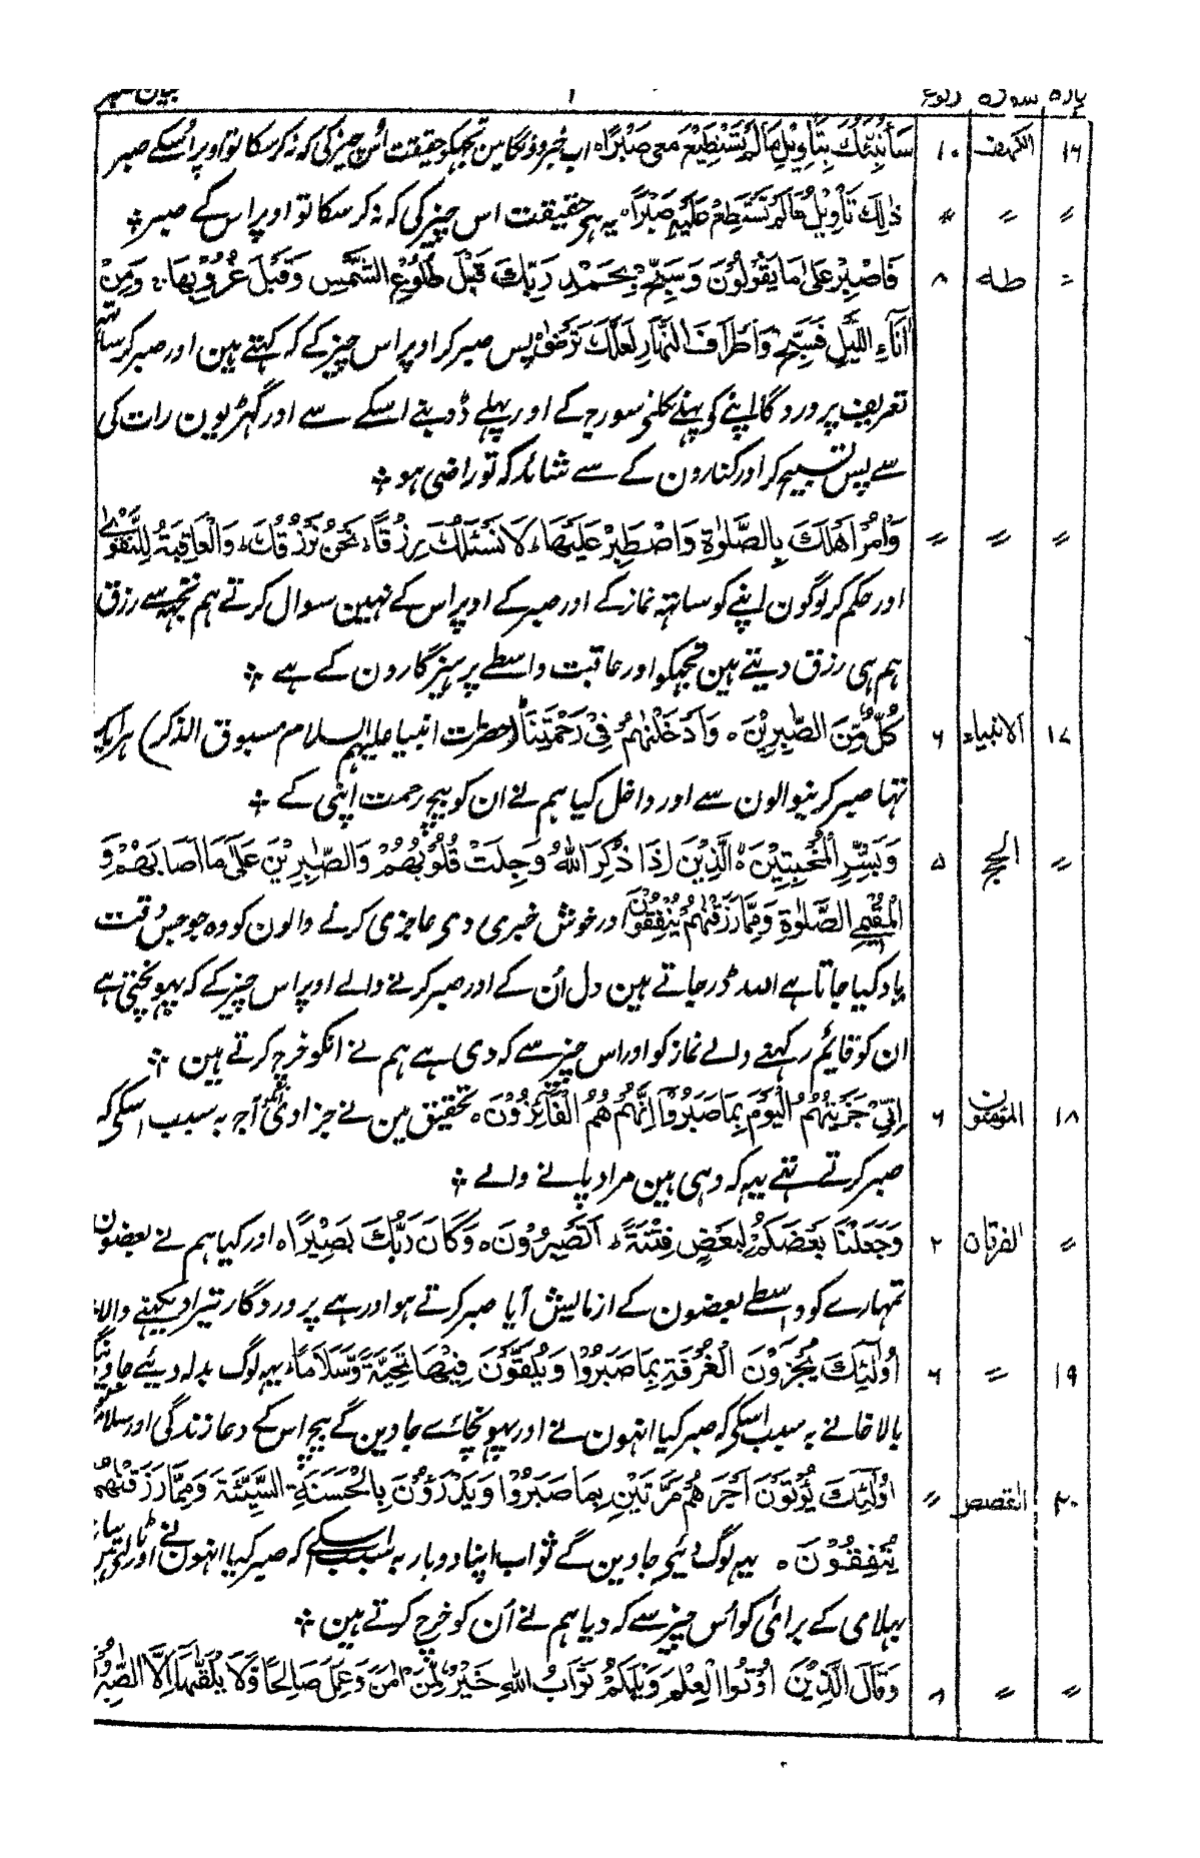 پارہ سورہ رکوع ۱ بیان صبر
۱۶ الکہف ۱۰ سَاُنَبِّئُكَ بِتَاْوِيْلِ مَالَمْ تَسْتَطِيْعْ مَعِیَ صَبْرًا ہ اب خبر دونگا مین تجہکو حقیقت اُس چیز کی کہ نہ کر سکا تو اوپر اُسکے صبر
〃 〃 〃 ذٰلِكَ تَاْوِيْلُ مَالَمْ تَسْتَطِعْ عَلَيْهِ صَبْرًا ہ یہ ہی حقیقت اس چیز کی کہ نہ کر سکا تو اوپر اس کے صبر ÷
〃 طہ ۸ فَاصْبِرْ عَلٰى مَا يَقُوْلُوْنَ وَسَبِّحْ بِحَمْدِ رَبِّكَ قَبْلَ طُلُوْعِ الشَّمْسِ وَقَبْلَ غُرُوْبِهَا ۚ وَمِنْ
اٰنَآءِ اللَّيْلِ فَسَبِّحْ وَاَطْرَافَ النَّهَارِ لَعَلَّكَ تَرْضٰى پس صبر کر اوپر اس چیز کے کہ کہتے ہین اور صبر کر ساتہہ
تعریف پروردگا اپنے کو پہلے نکلنے سورج کے اور پہلے ڈوبنے اسکے سے اور گہڑیون رات کی
سے پس تسبیح کر اور کنارون کے سے شائد کہ تو راضی ہو ÷
〃 〃 〃 وَاْمُرْ اَهْلَكَ بِالصَّلٰوةِ وَاصْطَبِرْ عَلَيْهَا ؕ لَا نَسْئَلُكَ رِزْقًا ؕ نَحْنُ نَرْزُقُكَ ؕ وَالْعَاقِبَةُ لِلتَّقْوٰى
اور حکم کر لوگون اپنے کو ساتہہ نماز کے اور صبر کے اوپر اس کے نہین سوال کرتے ہم تجہہ سے رزق
ہم ہی رزق دیتے ہین تجہکو اور عاقبت واسطے پرہیزگارون کے ہے ÷
۱۷ الانبیاء ۶ كُلٌّ مِّنَ الصّٰبِرِيْنَ ہ وَاَدْخَلْنٰهُمْ فِیْ رَحْمَتِنَا (حضرات انبیا علیہم السلام مسبوق الذکر) ہر ایک
تہا صبر کرنیوالون سے اور داخل کیا ہم نے ان کو بیچ رحمت اپنی کے ÷
〃 الحج ۵ وَبَشِّرِ الْمُخْبِتِيْنَ ہ الَّذِيْنَ اِذَا ذُكِرَ اللهُ وَجِلَتْ قُلُوْبُهُمْ وَالصّٰبِرِيْنَ عَلٰى مَا اَصَابَهُمْ وَ
الْمُقِيْمِی الصَّلٰوةِ وَمِمَّا رَزَقْنٰهُمْ يُنْفِقُوْنَ اور خوش خبری دی عاجزی کرنے والون کو وہ جو جس وقت
یاد کیا جاتا ہے اللہ ڈر جاتے ہین دل اُن کے اور صبر کرنے والے اوپر اس چیز کے کہ پہونچتی ہے
ان کو قایم رکہنے والے نماز کو اور اس چیز سے کہ دی ہے ہم نے انکو خرچ کرتے ہین ÷
۱۸ المؤمنون ۶ اِنِّیْ جَزَيْتُهُمُ الْيَوْمَ بِمَا صَبَرُوْا اَنَّهُمْ هُمُ الْفَآئِزُوْنَ ہ تحقیق مین نے جزا دی انکو آج بہ سبب اسکی کہ
صبر کرتے تہے یہہ کہ وہی ہین مراد پانے والے ÷
〃 الفرقان ۲ وَجَعَلْنَا بَعْضَكُمْ لِبَعْضٍ فِتْنَةً ؕ اَتَصْبِرُوْنَ ہ وَكَانَ رَبُّكَ بَصِيْرًا ہ اور کیا ہم نے بعضون
تمہارے کو واسطے بعضون کے ازمایش آیا صبر کرتے ہو اور ہے پروردگار تیرا دیکہنے والا
۱۹ 〃 ۶ اُولٰٓئِكَ يُجْزَوْنَ الْغُرْفَةَ بِمَا صَبَرُوْا وَيُلَقَّوْنَ فِيْهَا تَحِيَّةً وَّسَلَامًا ہ یہہ لوگ بدلہ دیئے جاوینگے
بالا خانے بہ سبب اسکی کہ صبر کیا انہون نے اور پہونچائے جاوین گے بیچ اس کے دعا زندگی اور سلام
۲۰ القصص 〃 اُولٰٓئِكَ يُؤْتَوْنَ اَجْرَهُمْ مَرَّتَيْنِ بِمَا صَبَرُوْا وَيَدْرَءُوْنَ بِالْحَسَنَةِ السَّيِّئَةَ وَمِمَّا رَزَقْنٰهُمْ
يُنْفِقُوْنَ ہ یہہ لوگ دئیے جاوین گے ثواب اپنا دوبار بہ سبب اسکے کہ صبر کیا انہون نے اور
بہلائی کے برائی کو اُس چیز سے کہ دیا ہم نے اُن کو خرچ کرتے ہین ÷
〃 〃 ۸ وَقَالَ الَّذِيْنَ اُوْتُوا الْعِلْمَ وَيْلَكُمْ ثَوَابُ اللهِ خَيْرٌ لِّمَنْ اٰمَنَ وَعَمِلَ صَالِحًا وَلَا يُلَقّٰهَا اِلَّا الصّٰبِرُوْنَ